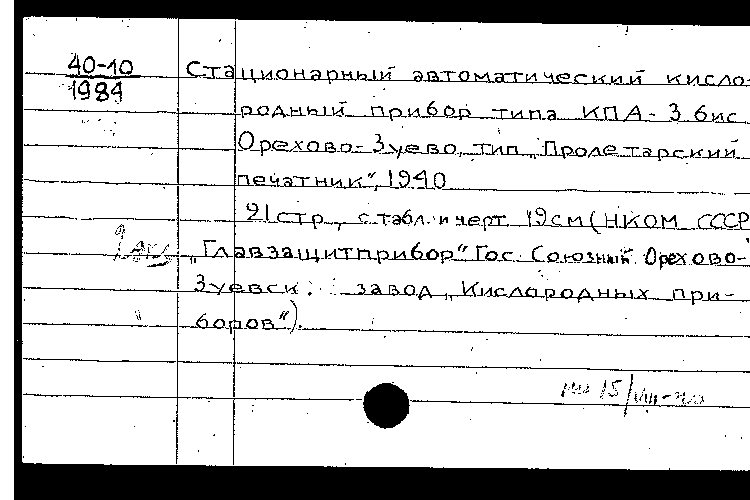 40-10
1984
Стационарный автоматический кисло-
родный прибор типа КПА-3 бис
Орехово-Зуево, тип. „Пролетарский
печатник", 1940
21 стр., с табл. и черт. 19 см (НКОМ СССР
„Главзащитприбор" Гос. Союзный Орехово-
Зуевск. завод „Кислородных при-
боров").